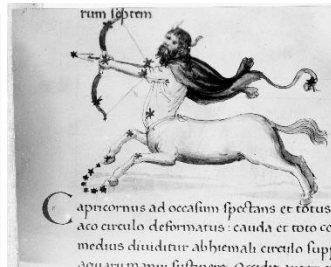 rum septem
Capricornus ad occasum spectans et totus
aco circulo deformatus: cauda et toto co
medius diuiditur ab hiemali circulo sup